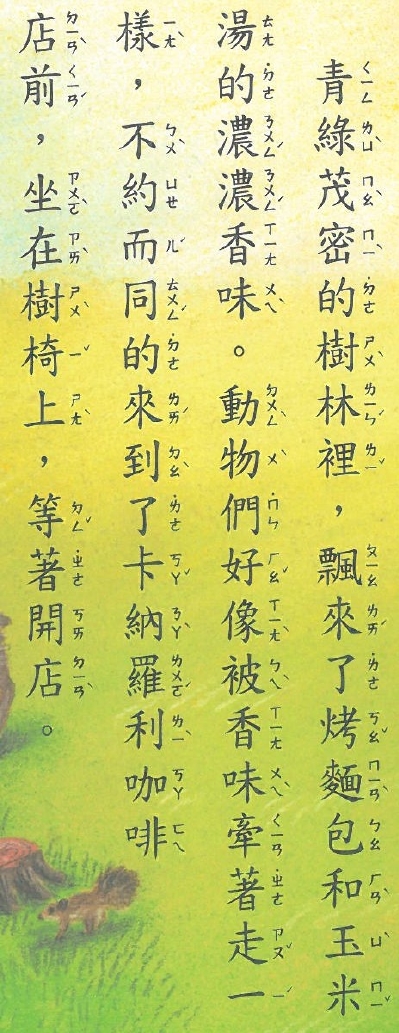 青綠茂密的樹林裡，飄來了烤麵包和玉米
湯的濃濃香味。動物們好像被香味牽著走一
樣，不約而同的來到了卡納羅利咖啡
店前，坐在樹椅上，等著開店。